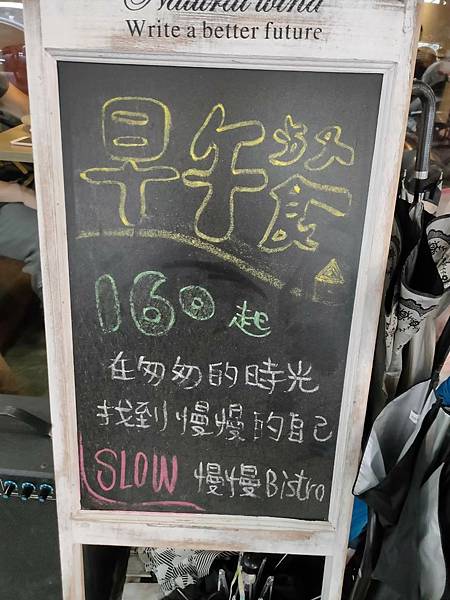 Natural wind
Write a better future
早午餐
160起
在匆匆的時光
找到慢慢的自己
SLOW 慢慢Bistro